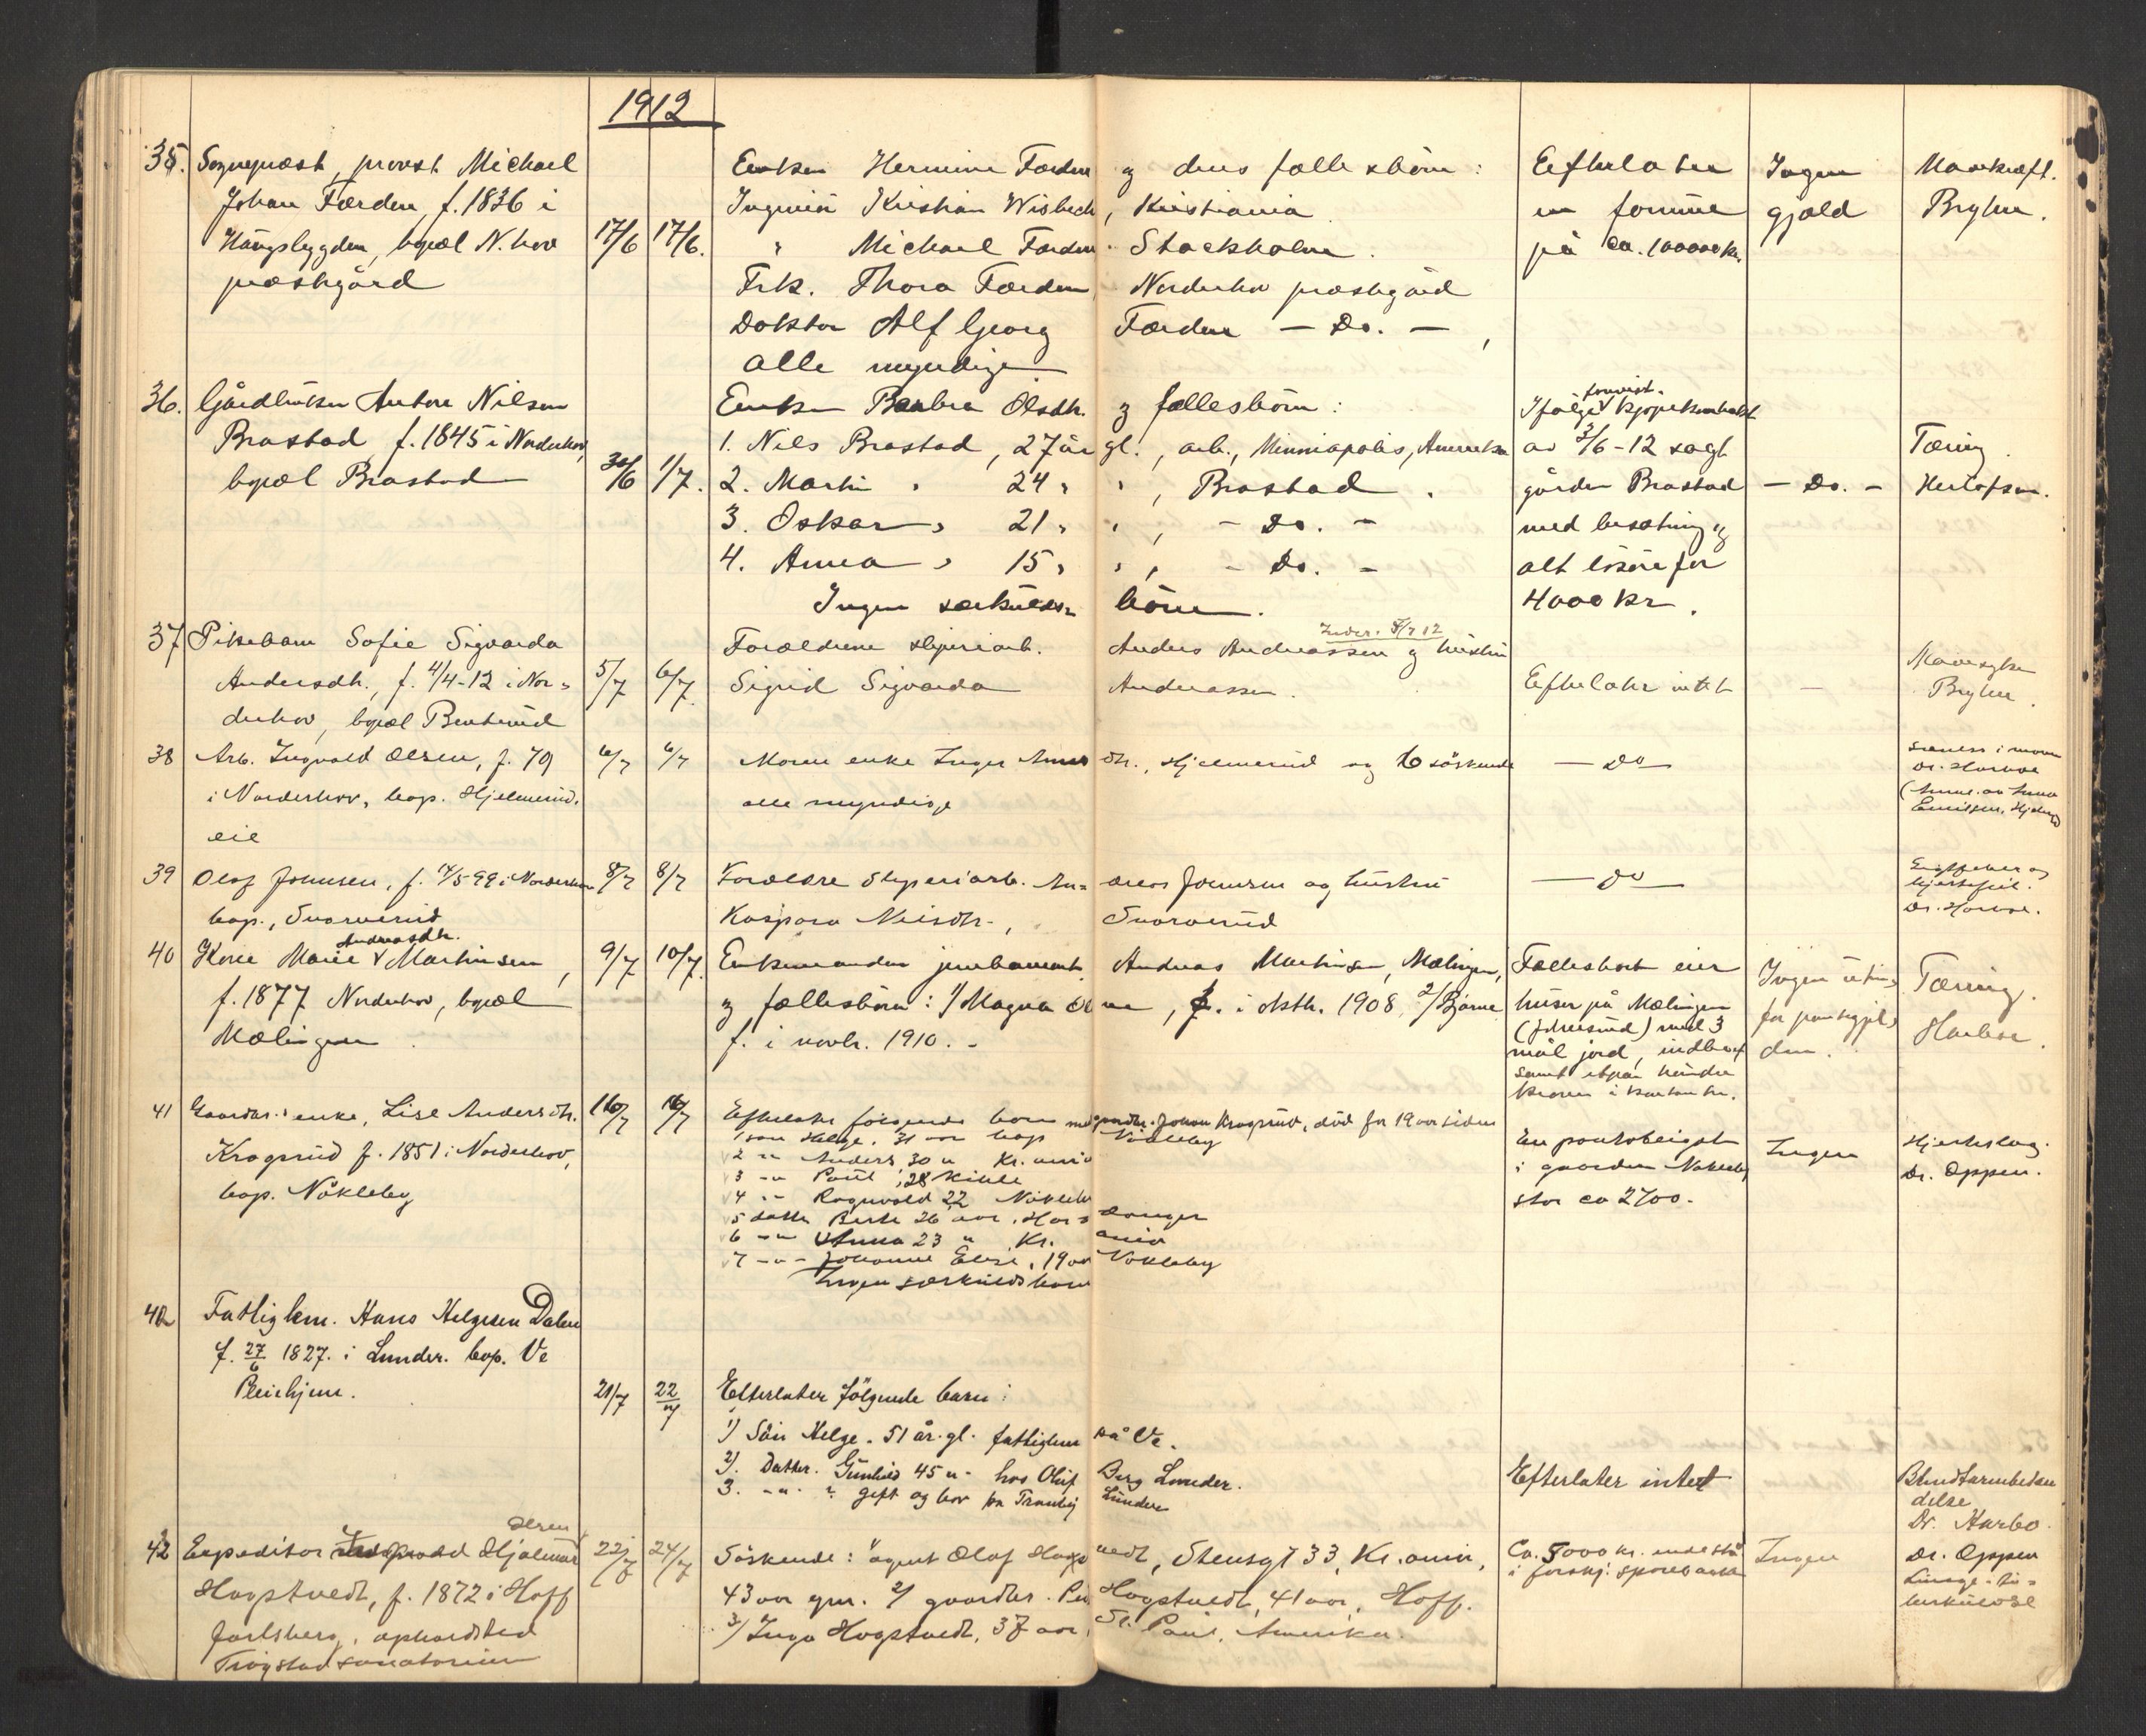 1912
35. Sognepræst, provst Michael
Johan Færden, f. 1836 i
bopæl N.hov
præstegård
17/6 17/6.
Enken Hermine Færden og deres fællesbörn:
Ingeniör Kristian Wisbech, Kristiania
" Michael Færden. Stockholm.
Frk. Thora Færden Norderhov præstegård
Doktor Alf Georg Færden — Do. —,
alle myndige
Efterlater
en formue
på ca. 100000 kr.
Ingen
gjæld
Mavekræft.
Bryhn.
36. Gårdbruker Anton Nilsen
Brastad, f. 1845 i Norderhov,
bopæl Brastad
30/6 1/7.
Enken Olsdtr. og fællesbörn:
1. Nils Brastad, 27 år gl., arb., Minniapolis, Amerika
2. Martin " 24 " ", Brastad.
3. Oskar " 21 " ", - Do. -
4. Anna " 15 " ", - Do. -
Ingen særkulds- börn.
Ifölge forevist kjøpekontrakt
av 3/6-12 solgt
gården Brastad
med besætning og
alt lösöre for
4000 kr.
— Do. —
Tæring.
Herlofsen.
37 Pikebarn Sofie Sigvarda
Andersdtr., f. 4/4-12 i Nor-
derhov, bopæl Benterud
5/7 6/7.
Forældrene sliperiarb. Anders Andreassen og hustru
Sigrid Sigvarda Andreassen.
Efterlater intet
—
Mavesyke
Bryhn.
38 Arb. Ingvald Olsen, f. 79
i Norderhov, bop. Hjelmerud.
eie
6/7 6/7
Moren enke Inger dtr., Hjelmerud og 6 söskende
alle myndige
— Do —
Dr. Harboe
39 Olaf Johnsen, f. 14/5 99 i Norderhov
bop., Svarverud
8/7 8/7
Forældre Sliperiarb. An- dreas Johnsen og hustru
Kaspara Nilsdtr., Svarverud
— Do —
hjertefeil.
Dr. Harboe.
40 Karen Marie Andreasdtr. Martinsen,
f. 1877 Norderhov, bopæl
Mælingen
9/7 10/7.
Enkemanden jernbanearb. Andreas Martinsen, Mælingen,
og fællesbörn: 1/ Magna , f. i oktbr. 1908, 2/ Bjarne
f. i novbr. 1910. -
Fællesboet eier
huser på Mælingen
med 3
mål jord, indbo
samt etpar hundre
kroner i kontanter.
Ingen
for
den.
Tæring.
Harboe.
41 Gaardbr.s enke, Lise Andersdtr.
Krogsrud f. 1851 i Norderhov,
bop. Nökleby
16/7 16/7
Efterlater fölgende barn med gaardbr. Johan Krogsrud, död for 19 aar siden
1 sön Helge, 31 aar bop Nökleby
2 -"- Anders, 30 " Kr.ania
3 -"- Paul, 28
4 -"- Ragnvald 22 Nökleby
5 datter Berte 26 aar, Har- danger
6 -"- Anna 23 " Kr. ania
7 -"- Johanne Elise, 19 aar Nökleby
Ingen særkuldsbarn
En panteobligat.
i gaarden Nökleby
stor ca 2700.
Ingen
Hjerteslag.
Dr. Oppen.
42 Fattiglem. Hans Helgesen Dalen
f. 27/6 1827. i Lunder. bop. Ve
Pleiehjem.
21/7 22/7
Efterlater fölgende barn:
1) Sön Helge. 51 år. gl. fattiglem på Ve.
2). Datter. Gunhild 45 " - hos Oluf Berg Lunder.
3. -"- ? gift og bor på Lunder
Efterlater intet
Blindtarmbeten
delse
Dr. Harbo.
42 Expeditör Hjalmar Olsen
Hogstvedt, f. 1872 i Hoff
Jarlsberg, opholdsted
Trögstad sanatorium
22/7 24/7
Söskende: 1/ agent Olaf Hogst vedt, Stensgt 33, Kr.ania,
43 aar gm. 2/ gaardbr. Hogstvedt, 41 aar, Hoff.
3/ Inga Hogstvedt, 37 aar, St. Paul, Amerika.
Ca. 5000 kr. indestå
i forskj. sparebanker
Ingen
Dr. Oppen
Lunge-tu-
berkulose